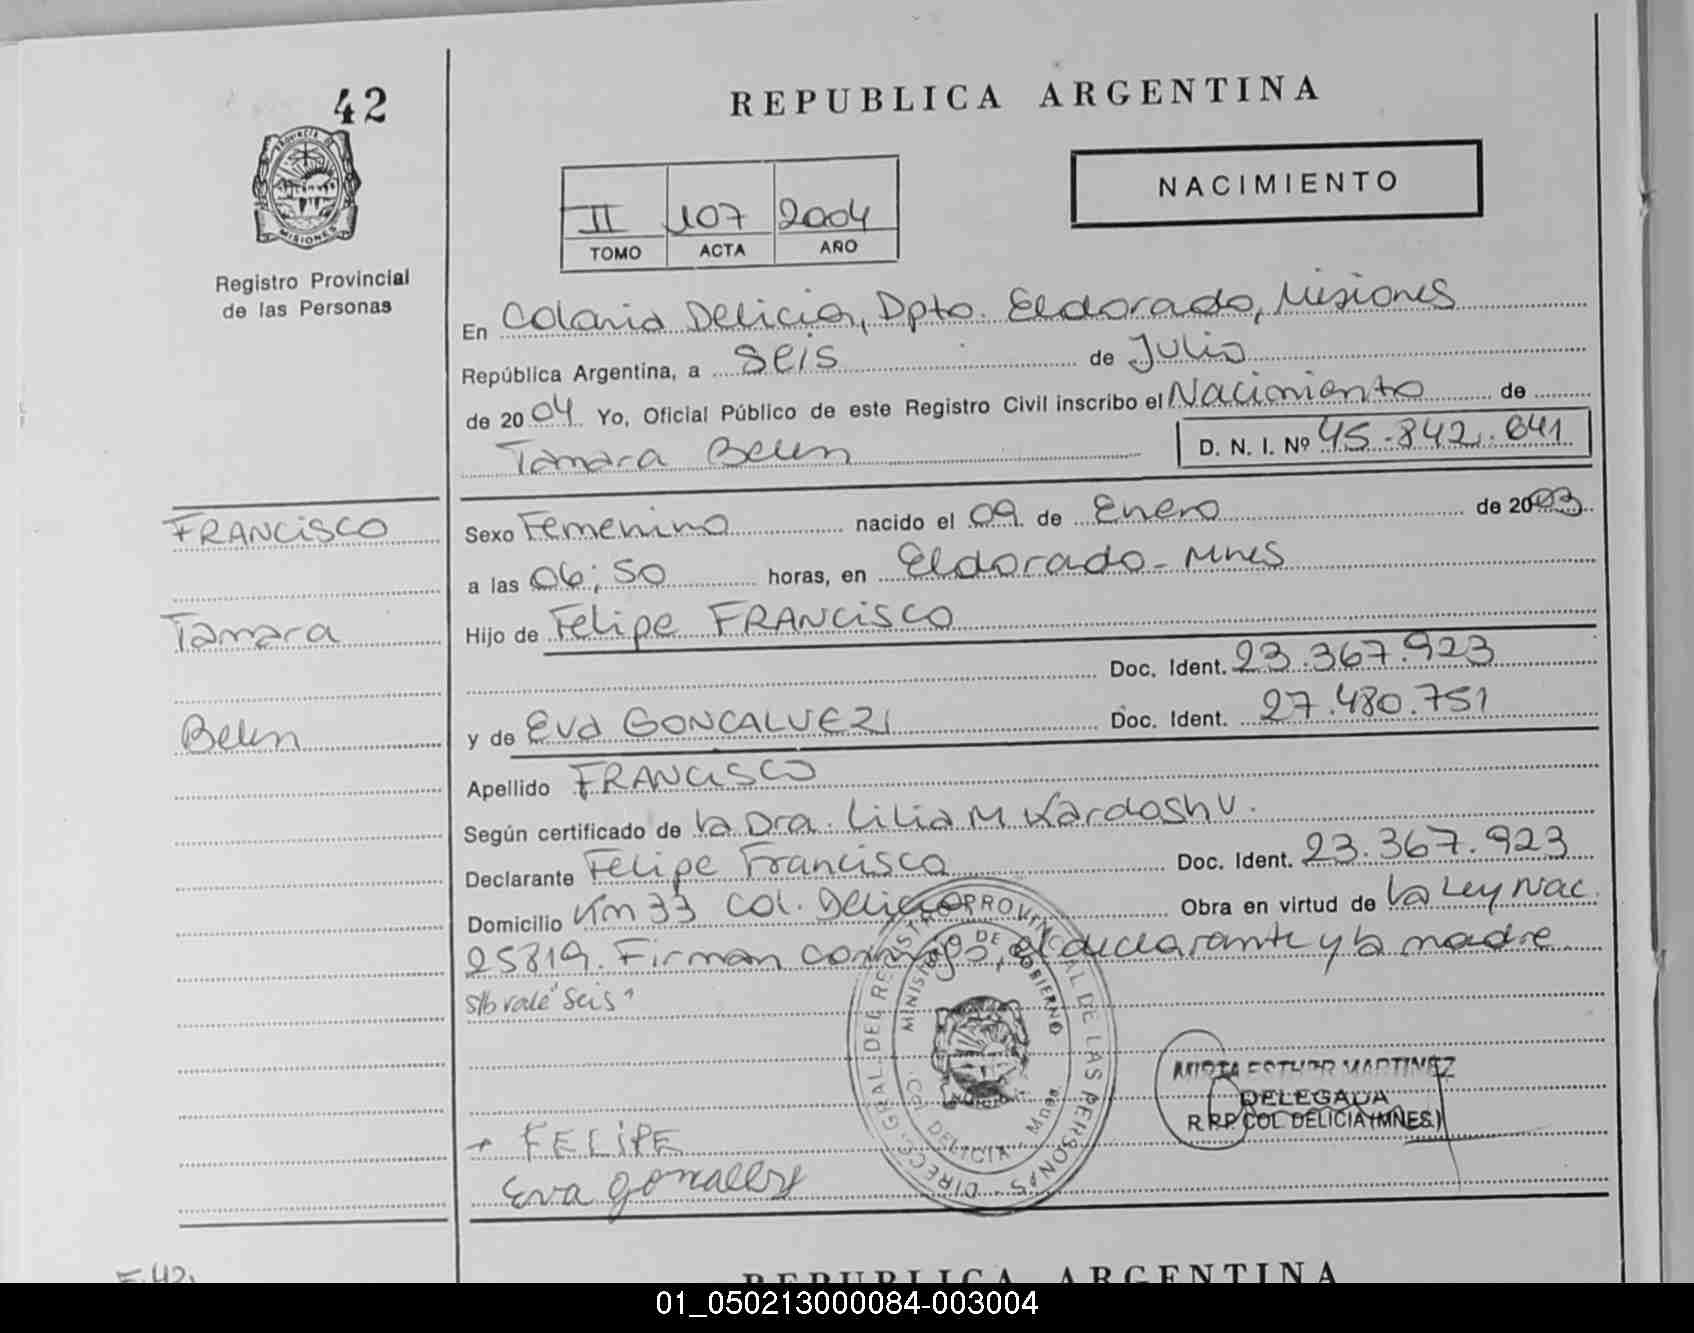 42
PROVINCIA DE
MISIONES
Registro Provincial
de las Personas
REPUBLICA ARGENTINA
NACIMIENTO
II 107 2004
TOMO ACTA AÑO
En Colonia Delicia, Dpto. Eldorado, Misiones
República Argentina, a seis de Julio
de 2004 Yo, Oficial Público de este Registro Civil inscribo el Nacimiento de
Tamara Belen D. N. I. Nº 45.842.641
FRANCISCO
Tamara
Belen
Sexo Femenino nacido el 09 de Enero de 2003
a las 06:50 horas, en Eldorado - Mnes
Hijo de Felipe FRANCISCO
Doc. Ident. 23.367.923
y de Eva GONCALVEZ Doc. Ident. 27.480.751
Apellido FRANCISCO
Según certificado de la Dra. Lilia M Kardashu.
Declarante Felipe Francisco Doc. Ident. 23.367.923
Domicilio Km 33 Col. Delicia Obra en virtud de la Ley Nac.
25819. Firman conmigo, el declarante y la madre
s/b vale "seis"
DIRECC. GRAL. DEL REGISTRO PROVINCIAL DE LAS PERSONAS
MINISTERIO DE GOBIERNO
COL. DELICIA Mnes.
MIRTA ESTHER MARTINEZ
DELEGADA
R.P.P. COL DELICIA (MNES)
FELIPE
Eva
REPUBLICA ARGENTINA
01_050213000084-003004